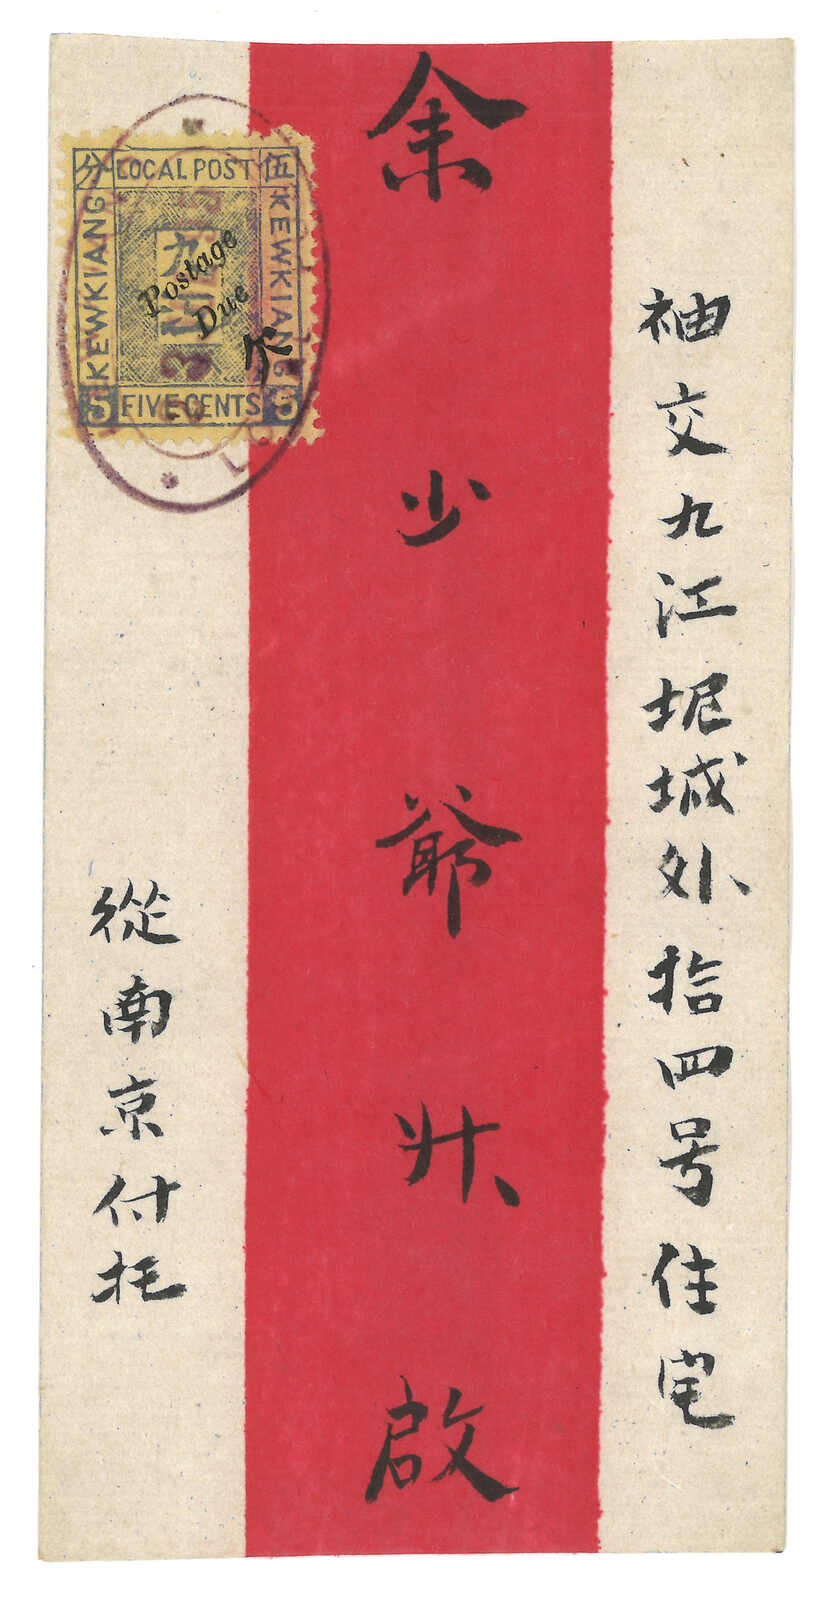 袖交九江坭城外拾四号住宅
余少爺升啟
從南京付托
分 LOCAL POST 伍
KEWKIANG
KEWKIANG
九江
Postage
Due
欠
5 FIVE CENTS 5